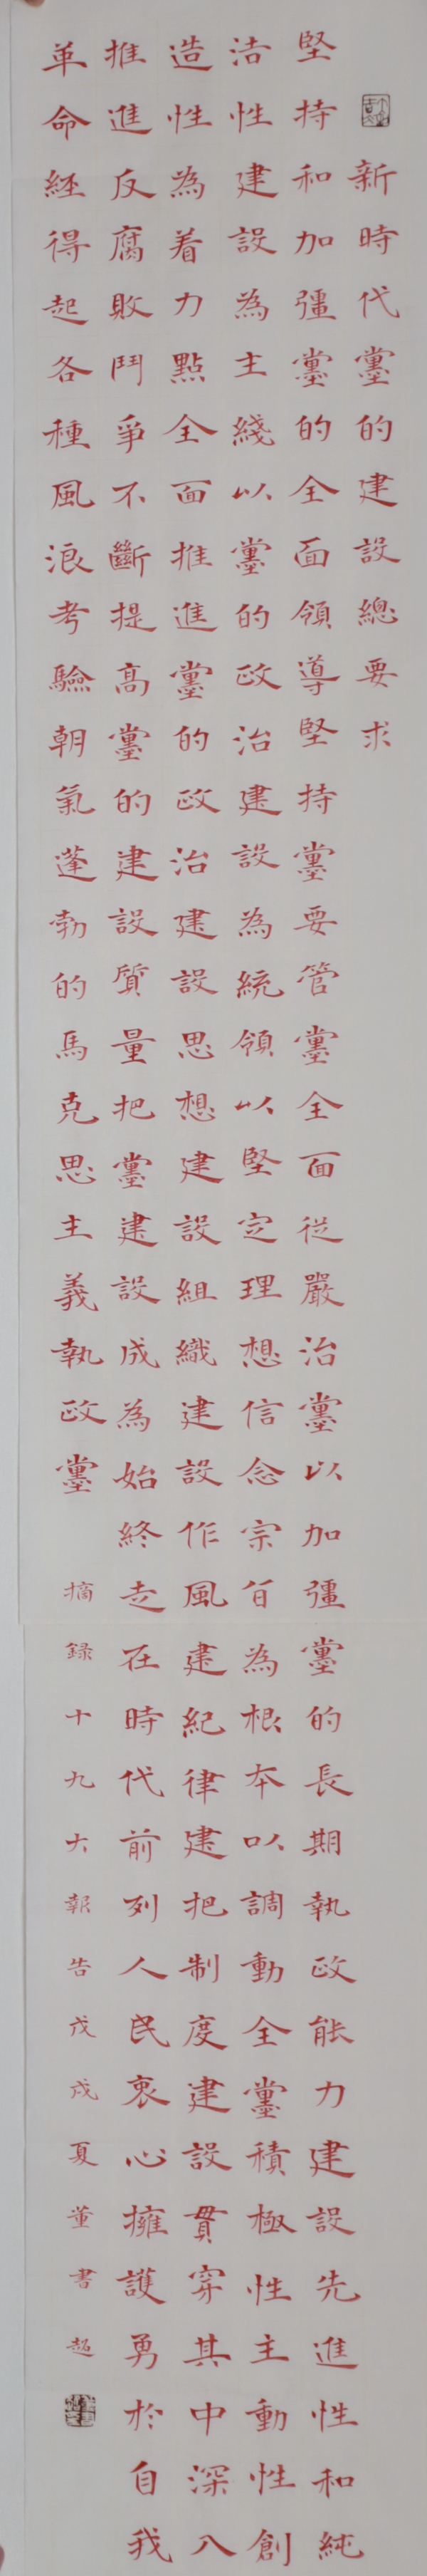 新時代黨的建設總要求
堅持和加彊黨的全面領導堅持黨要管黨全面從嚴治黨以加彊黨的長期執政能力建設先進性和純
洁性建設為主綫以黨的政治建設為統領以堅定理想信念宗旨為根本以調動全黨積極性主動性創
造性為着力點全面推進黨的政治建設思想建設組織建設作風建紀律建把制度建設貫穿其中深入
推進反腐敗鬥爭不斷提高黨的建設質量把黨建設成為始終走在時代前列人民衷心擁護勇於自我
革命經得起各種風浪考驗朝氣蓬勃的馬克思主義執政黨
摘録十九大報告戊戌夏董書超